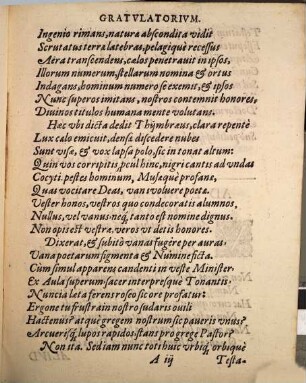 GRATVLATORIVM.
Ingenio rimans, natura abscondita vidit
Scrutatus terræ latebras, pelagiq́ue recessus
Aëra transcendens, cælos penetrauit in ipsos,
Illorum numerum, stellarum nomina & ortus
Indagans, hominum numero se exemit, & ipsos
Nunc superos imitans, nostros contemnit honores,
Diuinos titulos humana mente volutant.
Hæc vbi dicta dedit Thymbræus, clara repentè
Lux cælo emicuit, densæ discedere nubes
Sunt visæ, & vox lapsa polo, sic intonat altum:
Quin vos corripitis, pcul hinc, nigri cantis ad vndas
Cocyti. pestes hominum, Musæq́ue profanæ,
Quas vocitare Deas, vani voluere poetæ.
Vester honos, vestros quo condecoratis alumnos,
Nullus, vel vanus neq, tanto est nomine dignus.
Non opis est vestræ. veros vt detis honores.
Dixerat, & subitò vanas fugere per auras
Vana poetarum figmenta & Numine ficta.
Cum simul apparens candenti in veste Minister
Ex Aula superum sacer interpresque Tonantis
Nuncia læta ferens roseo sic ore profatur:
Ergone tu frustra in nostro sudaris ouili
Hactenus? atq́ue gregem nostrum sic paueris vnus?
Arcueris q lupos rapidos instans pro grege Pastor?
Non ita. Sed iam nunc tot huic vrbiq, orbiquè
A iij Testa-